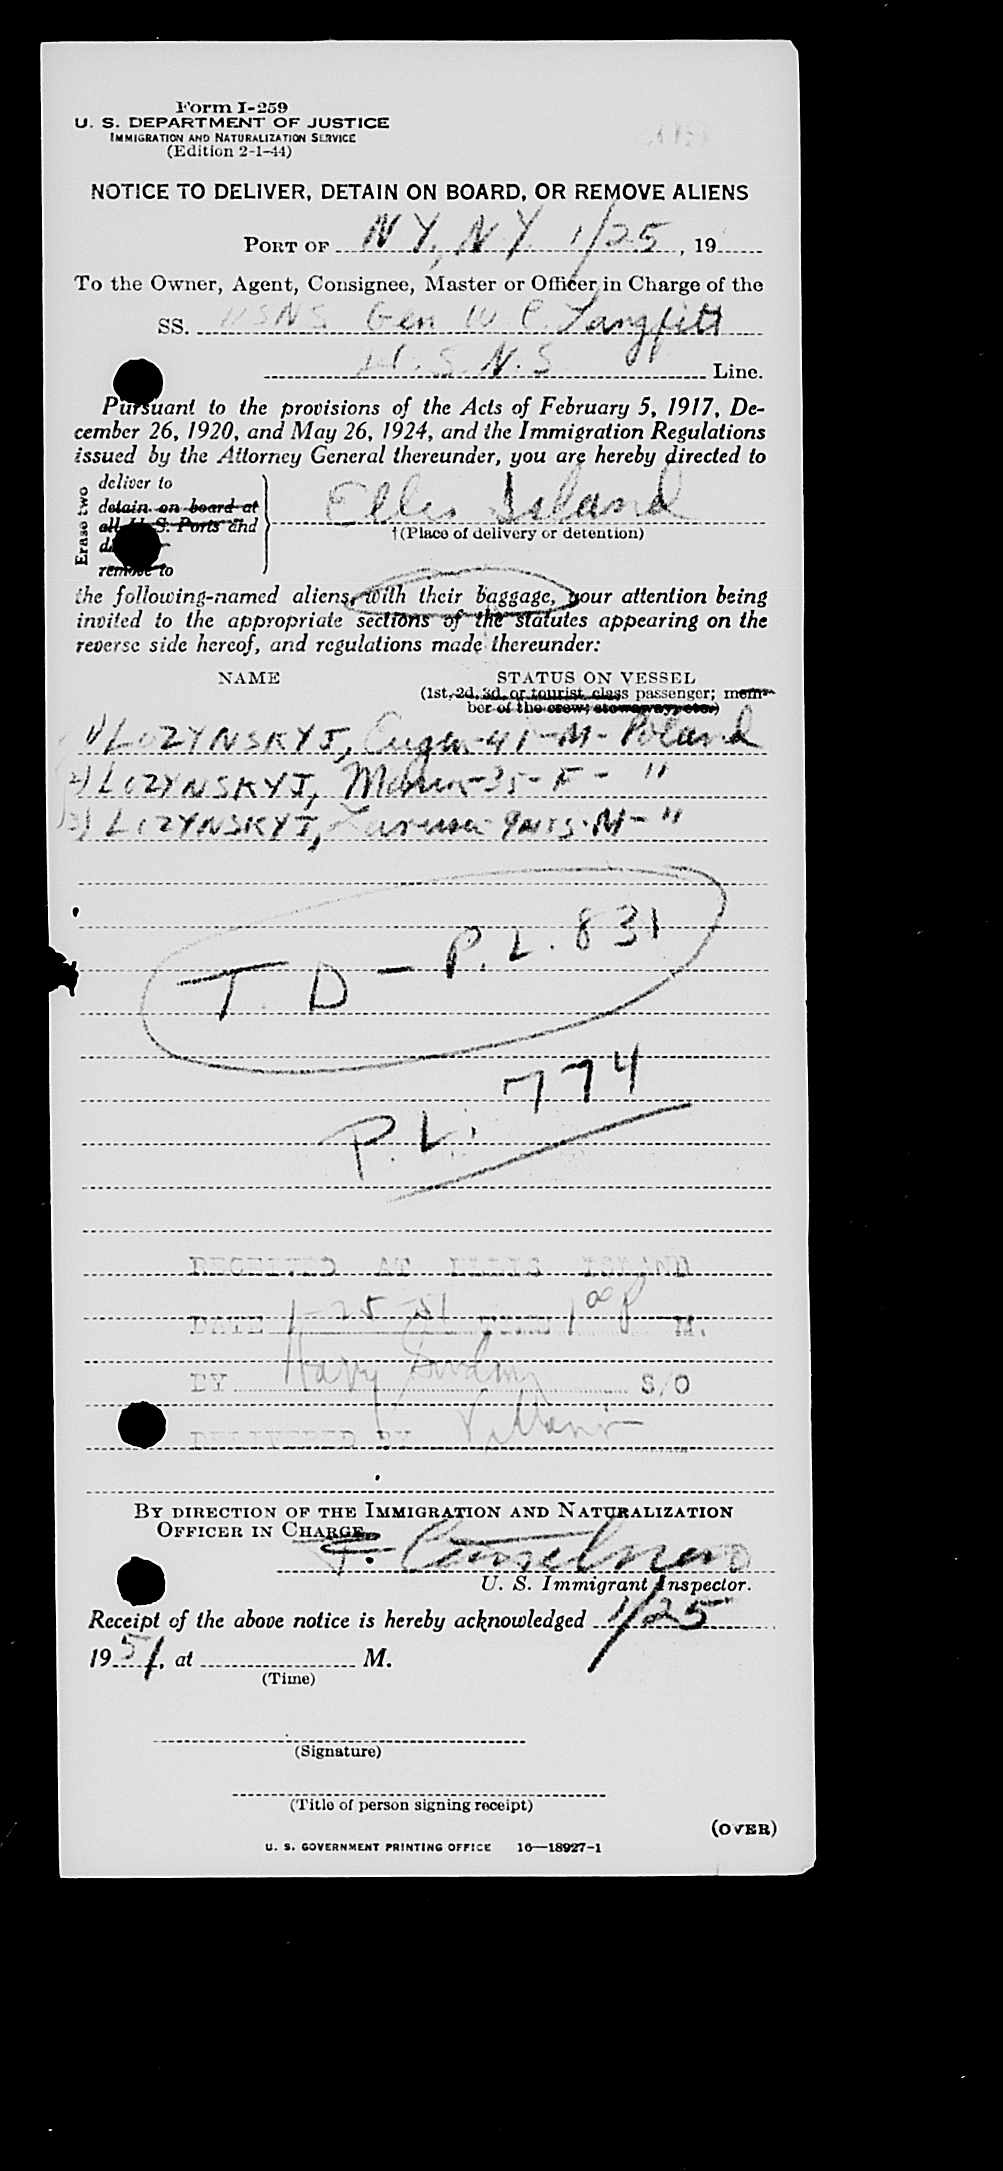 Form I-259
U. S. DEPARTMENT OF JUSTICE
IMMIGRATION AND NATURALIZATION SERVICE
(Edition 2-1-44)
NOTICE TO DELIVER, DETAIN ON BOARD, OR REMOVE ALIENS
PORT OF NY, NY 1/25, 19
To the Owner, Agent, Consignee, Master or Officer in Charge of the
SS. USNS Gen W C. Langfitt
U.S.N.S Line.
Pursuant to the provisions of the Acts of February 5, 1917, De-
cember 26, 1920, and May 26, 1924, and the Immigration Regulations
issued by the Attorney General thereunder, you are hereby directed to
Erase two
deliver to
detain on board at
all U. S. Ports and
remove to
Ellis Island
†(Place of delivery or detention)
the following-named aliens, with their baggage, your attention being
invited to the appropriate sections of the statutes appearing on the
reverse side hereof, and regulations made thereunder:
NAME STATUS ON VESSEL
(1st, 2d, 3d, or tourist class passenger; mem-
ber of the crew; stowaway; etc.)
1) LOZYNSKYJ, Eugen-41-M-Poland
2) LOZYNSKYJ, Maria-35-F- "
3) LOZYNSKYJ, 9 M- "
T. D - P. L. 831
P. L. 774
RECEIVED AT ELLIS ISLAND
DATE 1-25-51 TIME 1 00 P M.
BY Harry S/O
DELIVERED BY Villani
BY DIRECTION OF THE IMMIGRATION AND NATURALIZATION
OFFICER IN CHARGE
F.
U. S. Immigrant Inspector.
Receipt of the above notice is hereby acknowledged 1/25
1951, at M.
(Time)
(Signature)
(Title of person signing receipt)
(OVER)
U. S. GOVERNMENT PRINTING OFFICE 16—18927-1